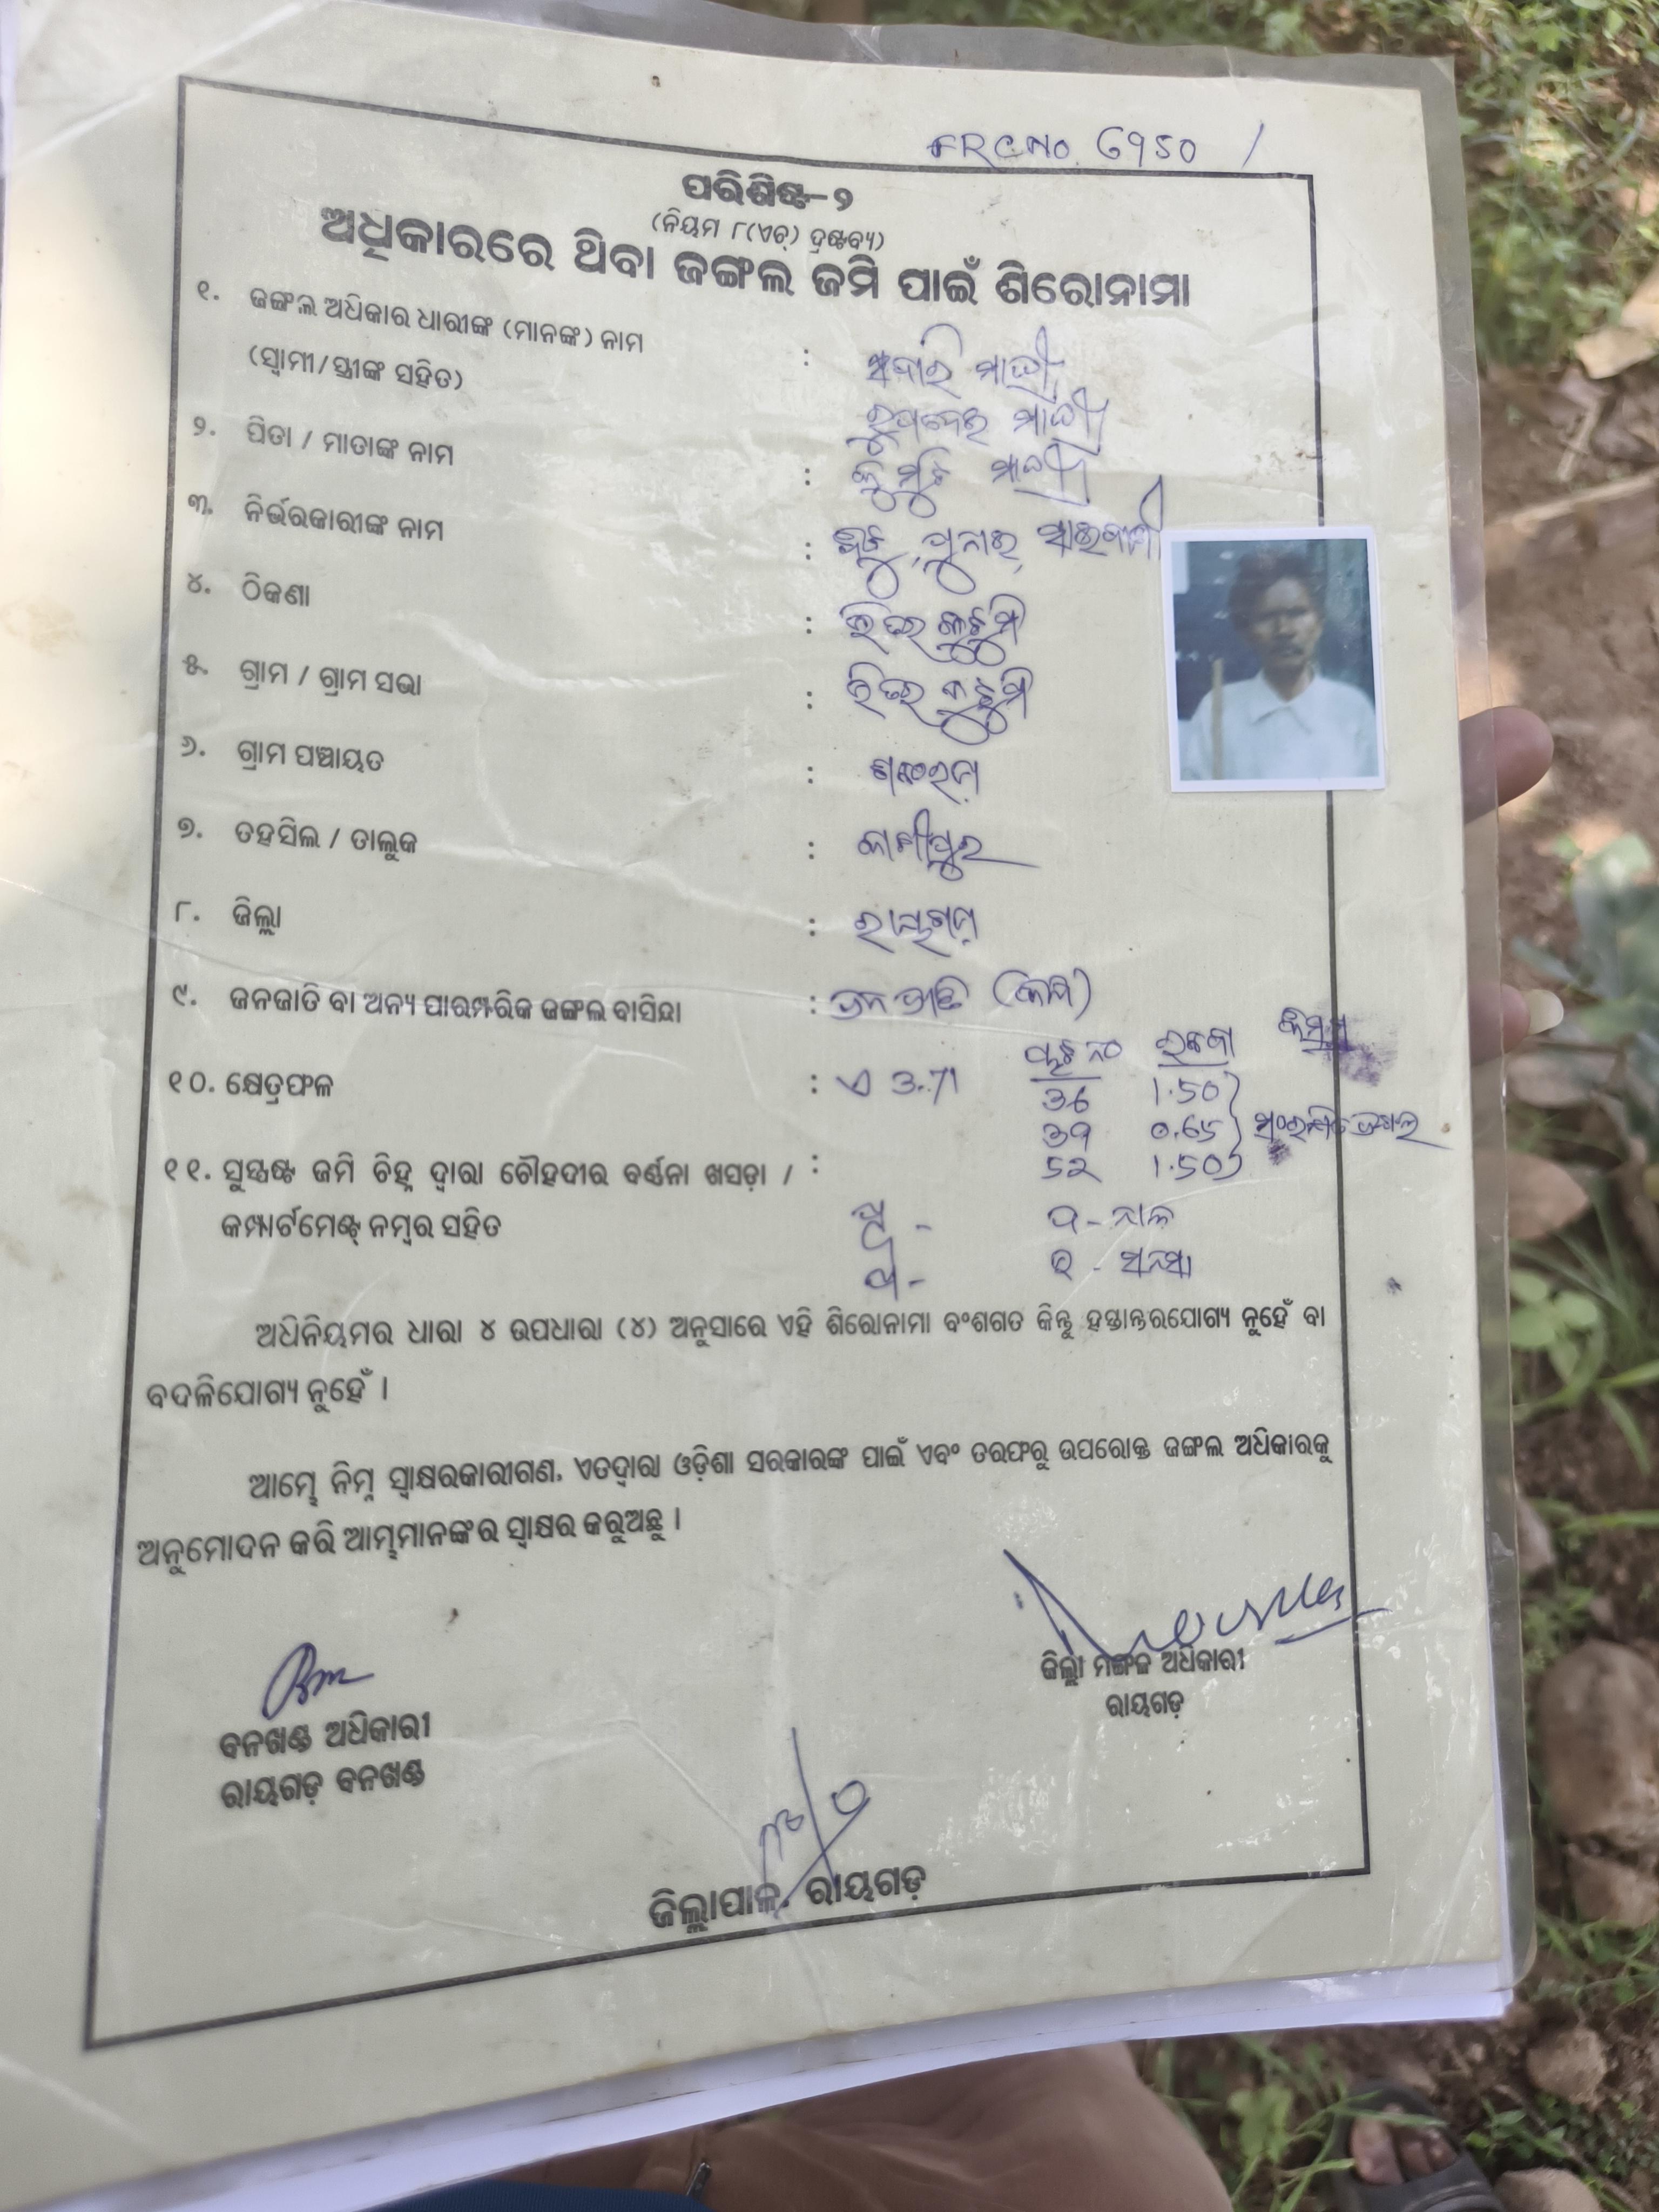 FRC.No. 6950
ପରିଶିଷ୍ଟ-୨
(ନିୟମ ୮(ଏଚ୍) ଦ୍ରଷ୍ଟବ୍ୟ)
ଅଧିକାରରେ ଥିବା ଜଙ୍ଗଲ ଜମି ପାଇଁ ଶିରୋନାମା
୧. ଜଙ୍ଗଲ ଅଧିକାର ଧାରୀଙ୍କ (ମାନଙ୍କ) ନାମ :
(ସ୍ୱାମୀ/ସ୍ତ୍ରୀଙ୍କ ସହିତ) ମାଝୀ
ମାଝୀ
୨. ପିତା / ମାତାଙ୍କ ନାମ : ମାଝୀ
୩. ନିର୍ଭରକାରୀଙ୍କ ନାମ :
୪. ଠିକଣା :
୫. ଗ୍ରାମ / ଗ୍ରାମ ସଭା :
୬. ଗ୍ରାମ ପଞ୍ଚାୟତ :
୭. ତହସିଲ / ତାଲୁକ : କାଶୀପୁର
୮. ଜିଲ୍ଲା : ରାୟଗଡ଼
୯. ଜନଜାତି ବା ଅନ୍ୟ ପାରମ୍ପରିକ ଜଙ୍ଗଲ ବାସିନ୍ଦା : ଜନଜାତି
ପ୍ଲଟ ନଂ ରକବା କିସମ
୧୦. କ୍ଷେତ୍ରଫଳ : ଏ 3.71 36 1.50
39 0.65 ସଂରକ୍ଷିତ ଜଙ୍ଗଲ
52 1.50
୧୧. ସୁସ୍ପଷ୍ଟ ଜମି ଚିହ୍ନ ଦ୍ୱାରା ଚୌହଦୀର ବର୍ଣ୍ଣନା ଖସଡ଼ା / :
କମ୍ପାର୍ଟମେଣ୍ଟ୍ ନମ୍ବର ସହିତ ପ - ନାଳ
ଅଧିନିୟମର ଧାରା ୪ ଉପଧାରା (୪) ଅନୁସାରେ ଏହି ଶିରୋନାମା ବଂଶଗତ କିନ୍ତୁ ହସ୍ତାନ୍ତରଯୋଗ୍ୟ ନୁହେଁ ବା
ବଦଳିଯୋଗ୍ୟ ନୁହେଁ ।
ଆମ୍ଭେ ନିମ୍ନ ସ୍ୱାକ୍ଷରକାରୀଗଣ, ଏତଦ୍ୱାରା ଓଡ଼ିଶା ସରକାରଙ୍କ ପାଇଁ ଏବଂ ତରଫରୁ ଉପରୋକ୍ତ ଜଙ୍ଗଲ ଅଧିକାରକୁ
ଅନୁମୋଦନ କରି ଆମ୍ଭମାନଙ୍କର ସ୍ୱାକ୍ଷର କରୁଅଛୁ ।
ଜିଲ୍ଲା ମଙ୍ଗଳ ଅଧିକାରୀ
ରାୟଗଡ଼
ବନଖଣ୍ଡ ଅଧିକାରୀ
ରାୟଗଡ଼ ବନଖଣ୍ଡ
ଜିଲ୍ଲାପାଳ, ରାୟଗଡ଼